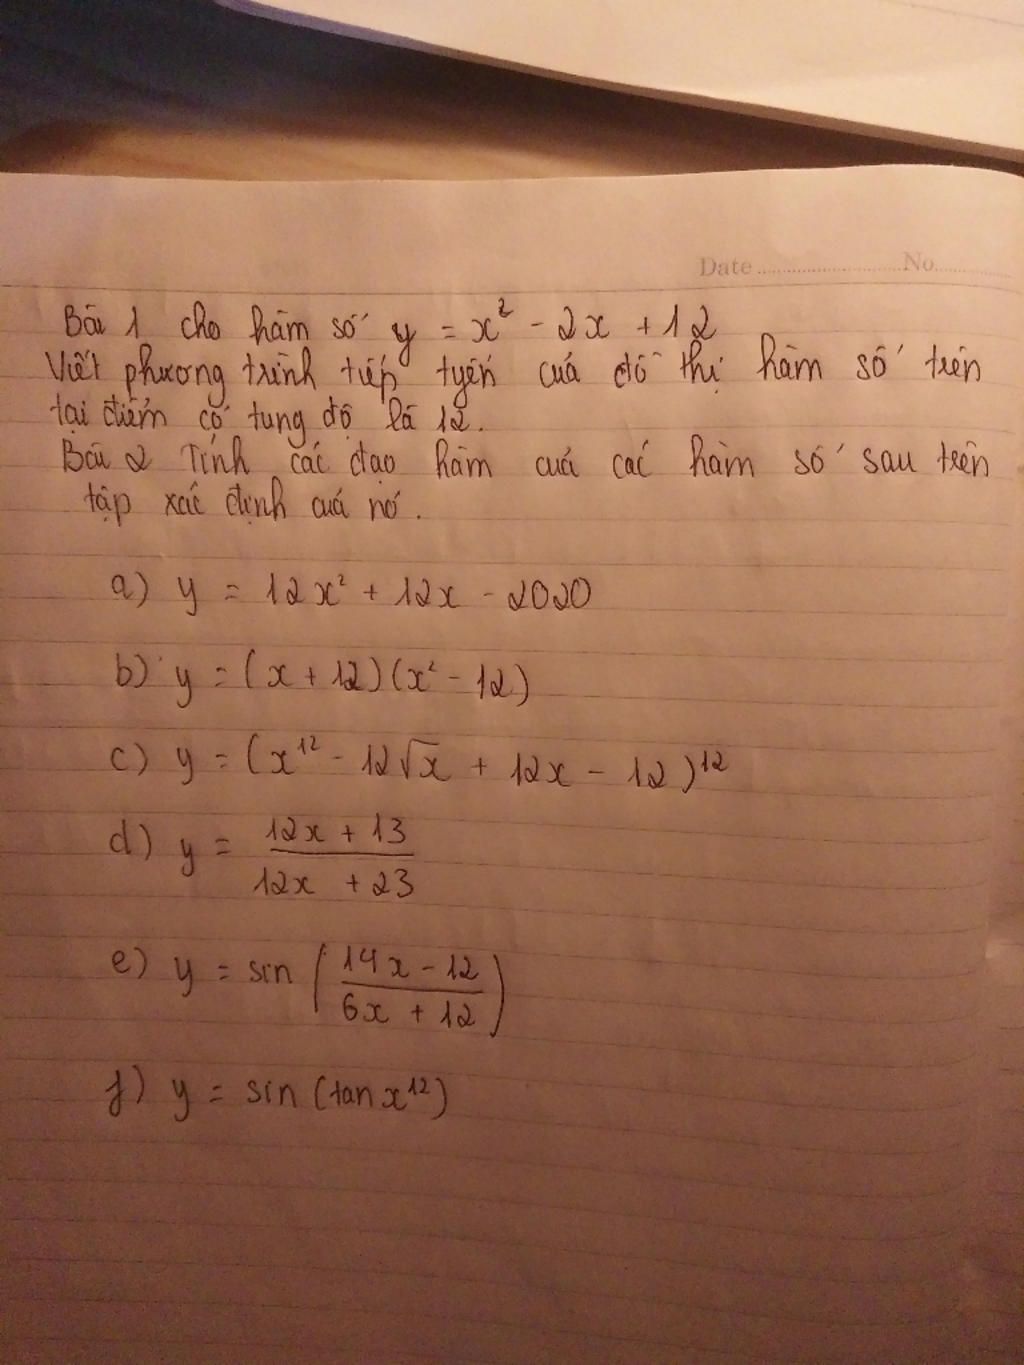 Date No
Bài 1 cho hàm số y = x² - 2x + 12
Viết phương trình tiếp tyến cuả đồ thị hàm số trên
tại điểm có tung độ là 12.
Bài 2 Tính các đạo hàm cuả các hàm số sau trên
tập xác định cuả nó.
a) y = 12x² + 12x - 2020
b) y = (x + 12)(x² - 12)
c) y = (x¹² - 12√x + 12x - 12)¹²
d) y = (12x + 13)/(12x + 23)
e) y = sin ((14x - 12)/(6x + 12))
f) y = sin (tan x¹²)